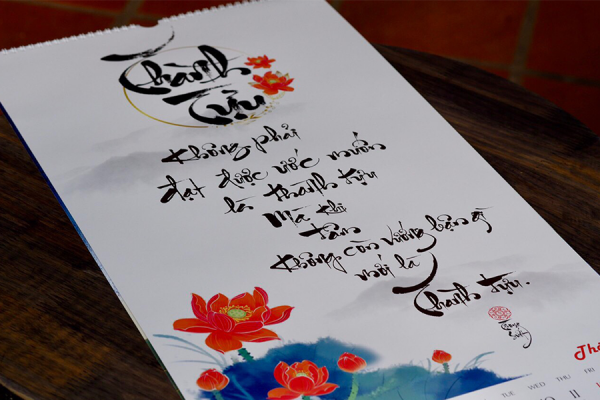 Thành
Tựu
Không phải
đạt được ước muốn
là thành tựu
Mà khi
tâm
không còn vướng bận gì
mới là
Thành tựu.
TUE WED THU FRI
11